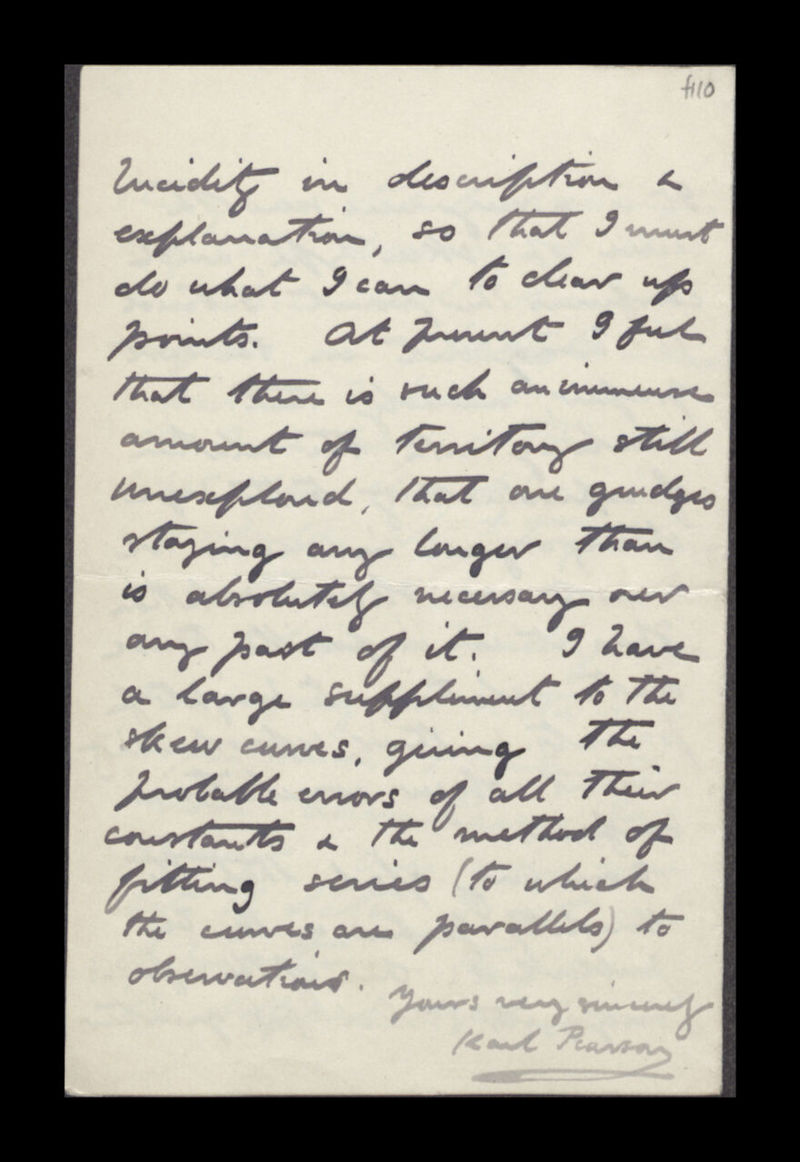 f110
lucidity in description &
explanation, so that I must
do what I can to clear up
points. At present I feel
that there is such an immense
amount of territory still
unexplored, that one grudges
staying any longer than
is absolutely necessary over
any part of it. I have
a large suppliment to the
skew curves, giving the
probable errors of all their
constants & the method of
fitting series (to which
the curves are parallels) to
observations.
Yours very sincerely
Karl Pearson